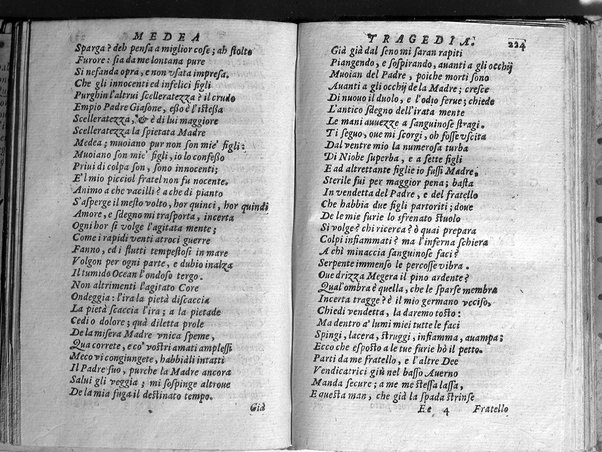 MEDEA
Sparga? deh pensa a miglior cose; ah stolto
Furore: sia da me lontana pure
Sì nefanda opra, e non vsata impresa.
Che gli innocenti ed infelici figli
Purghin l'altrui scelleratezza? il crudo
Empio Padre Giasone, essо è l'istessa
Scelleratezza, & è di lui maggiore
Scelleratezza la spietata Madre
Medea; muoiano pur non son mie' figli:
Muoiano son mie' figli, io lo confesso
Priui di colpa son, sono innocenti;
E'l mio picciol fratel non fu nocente.
Animo a che vacilli? a che di pianto
S'asperge il mesto volto, hor quinci, hor quindi
Amore, e sdegno mi trasporta, incerta
Ogni hor si volge l'agitata mente;
Come i rapidi venti atroci guerre
Fanno, ed i flutti tempestosi in mare
Volgon per ogni parte, e dubio inalza
Il tumido Ocean l'ondoso tergo.
Non altrimenti l'agitato Core
Ondeggia: l'ira la pietà discaccia
La pietà scaccia l'ira; a la pietade
Cedi o dolore; quà diletta prole
De la misera Madre vnica speme,
Qua correte, e co' vostri amati amplessi
Meco vi congiungete, habbiali intatti
Il Padre suo, purche la Madre ancora
Salui gli veggia; mi sospinge altroue
De la mia fuga il destinato tempo.
Già
TRAGEDIA. 224
Già già dal seno mi saran rapiti
Piangendo, e sospirando, auanti a gli occhij
Muoian del Padre, poiche morti sono
Auanti a gli occhij de la Madre; cresce
Di nuouo il duolo, e l'odio ferue; chiede
L'antico sdegno dell'irata mente
Le mani auuezze a sanguinose stragi.
Ti seguo, oue mi scorgi, oh fosse vscita
Dal ventre mio la numerosa turba
Di Niobe superba, e a sette figli
E ad altrettante figlie io fussi Madre.
Sterile fui per maggior pena; basta
In vendetta del Padre, e del fratello
Che habbia due figli partoriti; doue
De le mie furie lo sfrenato stuolo
Si volge? chi ricerca? ò quai prepara
Colpi infiammati? ma l'inferna schiera
A chì minaccia sanguinose faci?
Serpente immenso le percosse vibra.
Oue drizza Megera il pino ardente?
Qual'ombra è quella, che le sparse membra
Incerta tragge? è il mio germano vcciso,
Chiedi vendetta, la daremo tosto:
Ma dentro a' lumi miei tutte le faci
Spingi, lacera, struggi, infiamma, auampa;
Ecco che esposto a le tue furie hò il petto.
Parti da me fratello, e l'altre Dee
Vendicatrici giù nel basso Auerno
Manda secure; a me me stessa lassa,
E questa man, che già la spada strinse
Ee 4 Fratello